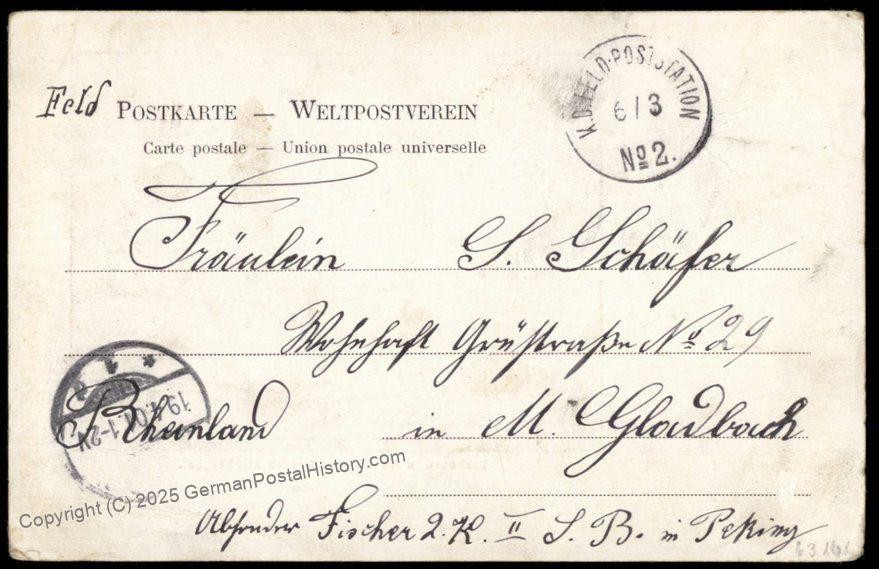 Feld POSTKARTE — WELTPOSTVEREIN
Carte postale — Union postale universelle
K.D. FELD-POSTSTATION
6/3
No 2.
Fräulein S. Schäfer
Wohnhaft Grüstraße No 29
Rheinland in M. Gladbach
19.4.01.1-2N
Copyright (C) 2025 GermanPostalHistory.com
Absender Fischer 2. K. II S. B. in Peking
6.3.